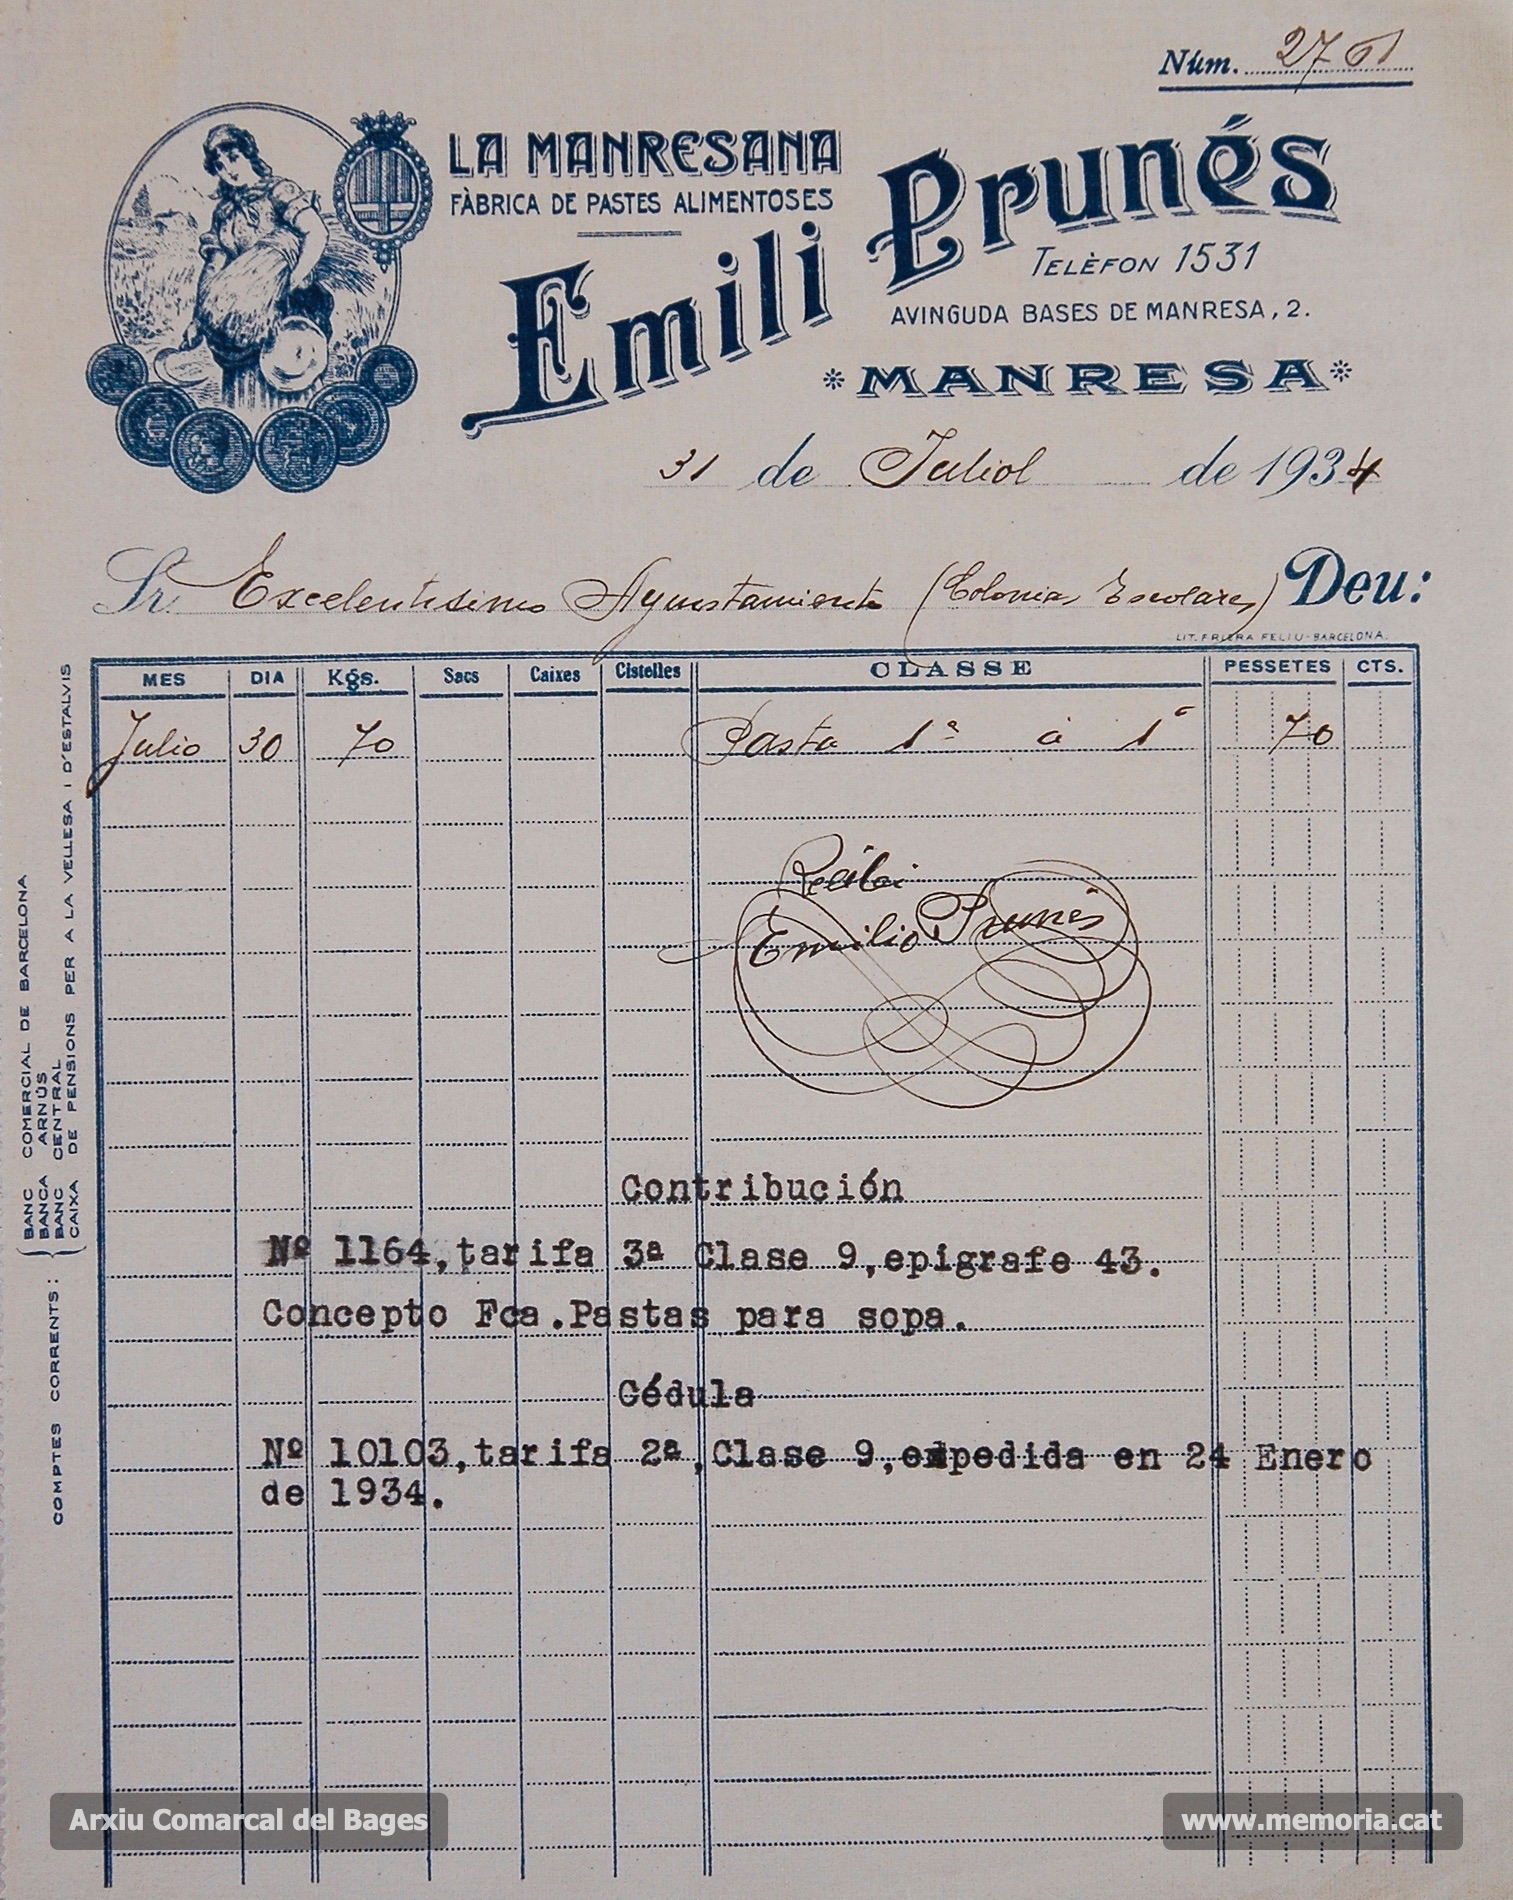 Núm. 2761
LA MANRESANA
FÀBRICA DE PASTES ALIMENTOSES
Emili Prunés
TELÈFON 1531
AVINGUDA BASES DE MANRESA, 2.
*MANRESA*
31 de Juliol de 1934
Sr. Excelentisimo Ayuntamiento (Colonias Escolares) Deu:
LIT. FRIERA FELIU-BARCELONA.
MES DIA Kgs. Sacs Caixes Cistelles CLASSE PESSETES CTS.
Julio 30 70 Pasta 1ª à 1' 70
Recibi
Emilio Prunés
Contribución
Nº 1164, tarifa 3ª Clase 9, epigrafe 43.
Concepto Fca. Pastas para sopa.
Cédula
Nº 10103, tarifa 2ª, Clase 9, expedida en 24 Enero
de 1934.
COMPTES CORRENTS:
BANC COMERCIAL DE BARCELONA
BANCA ARNÚS
BANC CENTRAL
CAIXA DE PENSIONS PER A LA VELLESA I D'ESTALVIS
Arxiu Comarcal del Bages
www.memoria.cat